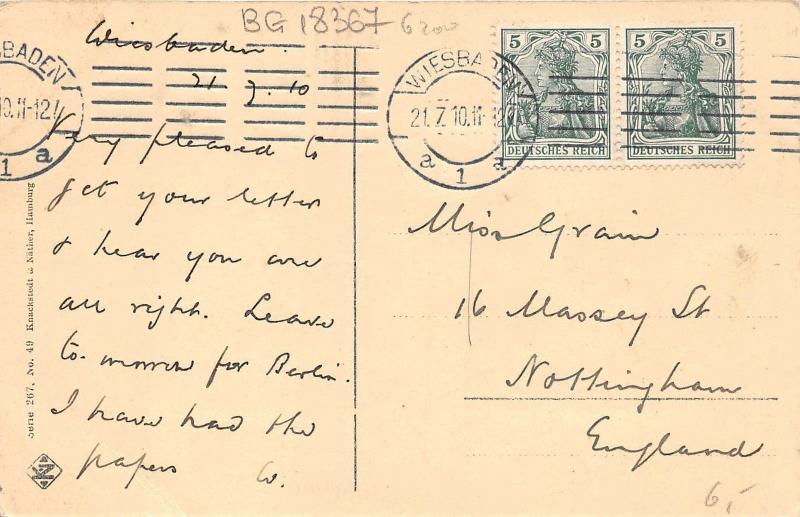 BG 18367
Wiesbaden.
21 7. 10
Very pleased to
get your letter
& hear you are
all right. Leave
to-morrow for Berlin.
I have had the
papers W.
WIESBADEN
10.11-12
1 a
WIESBADEN
21.7.10.11-12
a 1 a
5 5
DEUTSCHES REICH
5 5
DEUTSCHES REICH
Miss Grain
16 Massey St
Nottingham
England
Serie 267, No. 49 Knackstedt & Näther, Hamburg
6,-